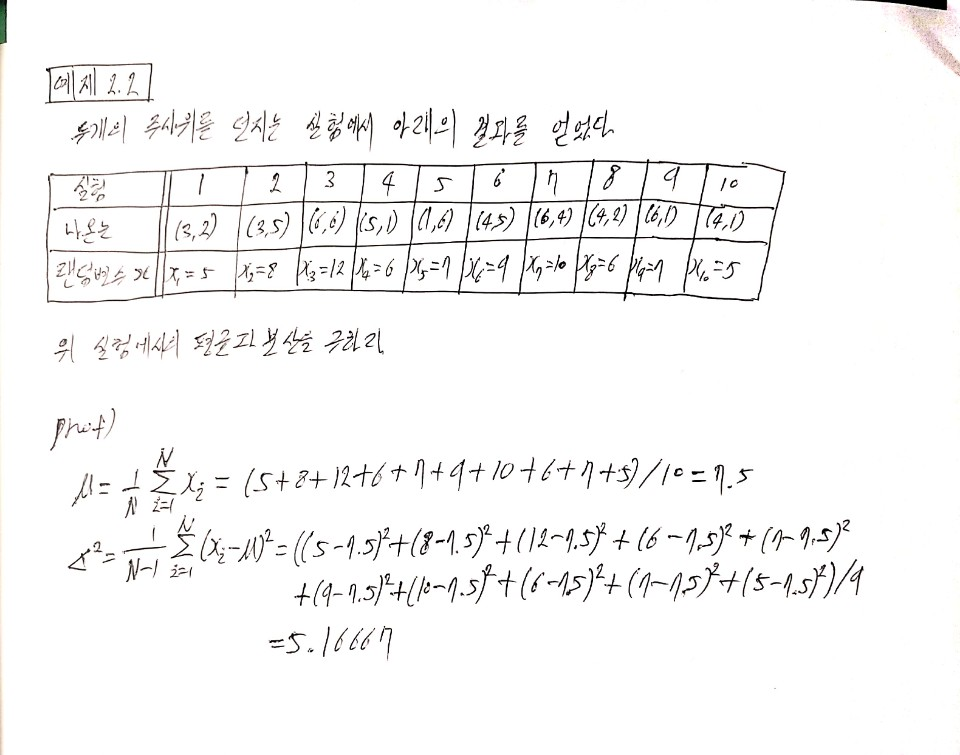 예제 2.2
두개의 주사위를 던지는 실험에서 아래의 결과를 얻었다.
실험 1 2 3 4 5 6 7 8 9 10
나온눈 (3,2) (3,5) (6,6) (5,1) (1,6) (4,5) (6,4) (4,2) (6,1) (4,1)
랜덤변수 x x₁=5 x₂=8 x₃=12 x₄=6 x₅=7 x₆=9 x₇=10 x₈=6 x₉=7 x₁₀=5
위 실험에서의 평균과 분산을 구하라.
proof)
μ = 1/N Σᵢ₌₁ᴺ xᵢ = (5+8+12+6+7+9+10+6+7+5)/10 = 7.5
² = 1/(N-1) Σᵢ₌₁ᴺ (xᵢ-μ)² = ((5-7.5)²+(8-7.5)²+(12-7.5)²+(6-7.5)²+(7-7.5)²
+(9-7.5)²+(10-7.5)²+(6-7.5)²+(7-7.5)²+(5-7.5)²)/9
=5.16667